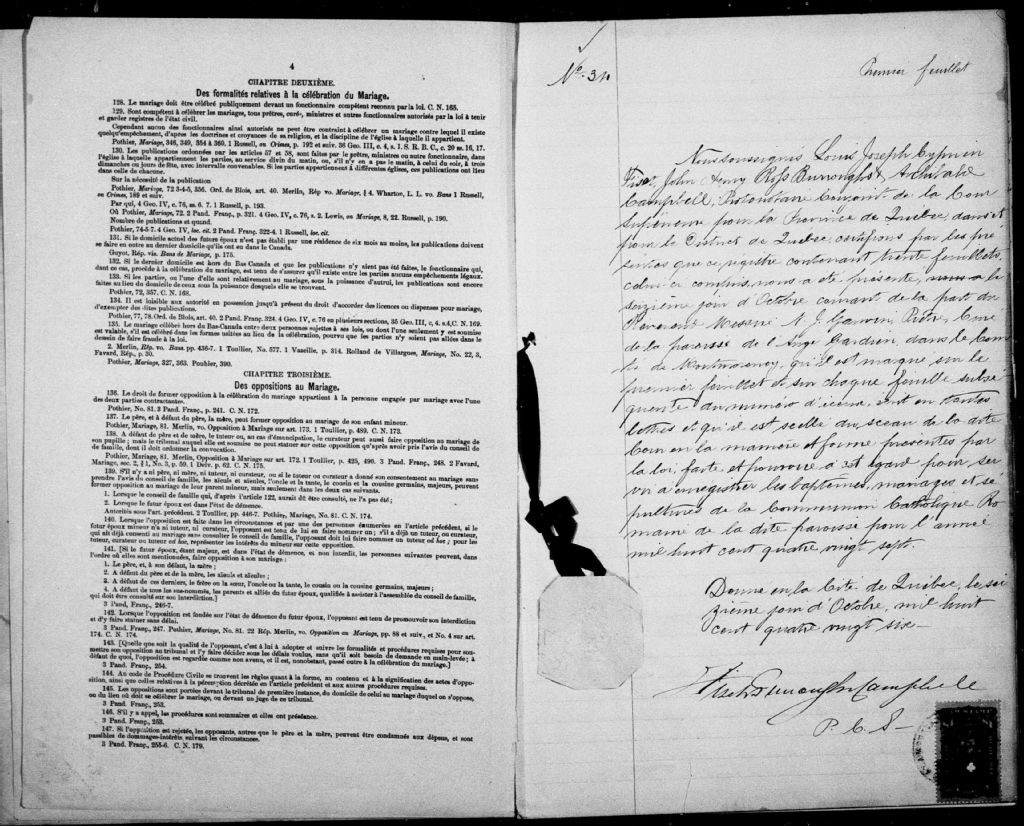 4
CHAPITRE DEUXIÈME.
Des formalités relatives à la célébration du Mariage.
128. Le mariage doit être célébré publiquement devant un fonctionnaire compétent reconnu par la loi. C. N. 165.
129. Sont compétents à célébrer les mariages, tous prêtres, curés, ministres et autres fonctionnaires autorisés par la loi à tenir
et garder registres de l'état civil.
Cependant aucun des fonctionnaires ainsi autorisés ne peut être contraint à célébrer un mariage contre lequel il existe
quelqu'empêchement, d'après les doctrines et croyances de sa religion, et la discipline de l'église à laquelle il appartient.
Pothier, Mariage, 346, 349, 354 à 360. 1 Russell, on Crimes, p. 192 et suiv. 36 Geo. III, c. 4, s. 1. S. R. B. C., c. 20 ss. 16, 17.
130. Les publications ordonnées par les articles 57 et 58, sont faites par le prêtre, ministre ou autre fonctionnaire, dans
l'église à laquelle appartiennent les parties, au service divin du matin, ou, s'il n'y en a pas le matin, à celui du soir, à trois
dimanches ou jours de fête, avec intervalles convenables. Si les parties appartiennent à différentes églises, ces publications ont lieu
dans celle de chacune.
Sur la nécessité de la publication
Pothier, Mariage, 72 3-4-5, 356. Ord. de Blois, art. 40. Merlin, Rép vo. Mariage, § 4. Wharton, L. L. vo. Bans 1 Russell,
on Crimes, 189 et suiv.
Par qui, 4 Geo. IV, c. 76, ss. 6. 7. 1 Russell, p. 193.
Où Pothier, Mariage, 72. 2 Pand. Franç., p. 321. 4 Geo. IV, c. 76, s. 2. Lewis, on Mariage, 8, 22. Russell, p. 190.
Nombre de publications et quand.
Pothier, 74-5-7. 4 Geo. IV, loc. cit. 2 Pand. Franç. 322-4. 1 Russell, loc. cit.
131. Si le domicile actuel des futurs époux n'est pas établi par une résidence de six mois au moins, les publications doivent
se faire en outre au dernier domicile qu'ils ont eu dans le Canada.
Guyot, Rép. vis. Bans de Mariage, p. 175.
132. Si le dernier domicile est hors du Bas-Canada et que les publications n'y aient pas été faites, le fonctionnaire qui,
dans ce cas, procède à la célébration du mariage, est tenu de s'assurer qu'il existe entre les parties aucuns empêchements légaux.
133. Si les parties, ou l'une d'elle sont relativement au mariage, sous la puissance d'autrui, les publications sont encore
faites au lieu du domicile de ceux sous la puissance desquels elle se trouvent.
Pothier, 72, 357. C. N. 168.
134. Il est loisible aux autorité en possession jusqu'à présent du droit d'accorder des licences ou dispenses pour mariage,
d'exempter des dites publications.
Pothier, 77, 78. Ord. de Blois, art. 40. 2 Pand. Franç. 324. 4 Geo. IV, c. 76 en plusieurs sections, 35 Geo. III, c, 4. s.4, C. N. 169.
135. Le mariage célébré hors du Bas-Canada entre deux personnes sujettes à ses lois, ou dont l'une seulement y est soumise
est valable, s'il est célébré dans les formes usitées au lieu de la célébration, pourvu que les parties n'y soient pas allées dans le
dessein de faire fraude à la loi.
2. Merlin, Rép. vo. Bans pp. 436-7. 1 Toullier, No. 577. 1 Vazeille. p. 314. Rolland de Villargues, Mariage, No. 22, 3,
Favard, Rép., p. 30.
Pothier, Mariage, 327, 363. Poublier, 390.
CHAPITRE TROISIÈME.
Des oppositions au Mariage.
136. Le droit de former opposition à la célébration du mariage appartient à la personne engagée par mariage avec l'une
des deux parties contractantes.
Pothier, No. 81. 3 Pand. Franç., p. 241. C. N. 172.
137. Le père, et à défaut du père, la mère, peut former opposition au mariage de son enfant mineur.
Pothier, Mariage, 81. Merlin, vo. Opposition à Mariage sur art. 173. 1 Toullier, p. 489. C. N. 173.
138. A défaut de père et de mère, le tuteur ou, en cas d'émancipation, le curateur peut aussi faire opposition au mariage de
son pupille; mais le tribunal auquel elle est soumise ne peut statuer sur cette opposition qu'après avoir pris l'avis du Conseil
de famille, dont il doit ordonner la convocation.
Pothier, Mariage, 81. Merlin, Opposition à Mariage sur art. 172. 1 Toullier, p. 425, 490. 3 Pand. Franç., 248. 2 Favard,
Mariage, sec. 2, § 1, No. 3, p. 59. 1 Delv. p. 62. C. N. 175.
139. S'il n'y a ni père, ni mère, ni tuteur, ni curateur, ou si le tuteur ou curateur a donné son consentement au mariage sans
prendre l'avis du conseil de famille, les aïeuls et aïeules, l'oncle et la tante, le cousin et la cousine germains, majeurs, peuvent
former opposition au mariage de leur parent mineur, mais seulement dans les deux cas suivants.
1. Lorsque le conseil de famille qui, d'après l'article 122, aurait dû être consulté, ne l'a pas été;
2. Lorsque le futur époux est dans l'état de démence.
Autorités sous l'art. précédent. 2 Toullier, pp. 446-7. Pothier, Mariage, No. 81. C. N. 174.
140. Lorsque l'opposition est faite dans les circonstances et par une des personnes énumérées en l'article précédent, si le
futur époux mineur n'a ni tuteur, ni curateur, l'opposant est tenu de lui en faire nommer un; s'il a déjà un tuteur, ou curateur,
qui ait déjà consenti au mariage sans consulter le conseil de famille, l'opposant doit lui faire nommer un tuteur ad hoc; pour les
tuteur, curateur ou tuteur ad hoc, représenter les intérêts du mineur sur cette opposition.
141. [Si le futur époux, étant majeur, est dans l'état de démence, et non interdit, les personnes suivantes peuvent, dans
l'ordre où elles sont mentionnées, faire opposition à son mariage:
1. Le père, et, à son défaut, la mère;
2. A défaut du père et de la mère, les aïeuls et aïeules;
3. A défaut de ces derniers, le frère ou la sœur, l'oncle ou la tante, le cousin ou la cousine germains, majeurs;
4. A défaut de tous les sus-nommés, les parents et alliés du futur époux, qualifiés à assister à l'assemblée du conseil de famille,
qui doit être consulté sur son interdiction.]
3 Pand, Franç., 246-7.
142. Lorsque l'opposition est fondée sur l'état de démence du futur époux, l'opposant est tenu de promouvoir son interdiction
et d'y faire statuer sans délai.
3 Pand. Franç., 247. Pothier, Mariage, No. 81. 22 Rép. Merlin, vo. Opposition au Mariage, pp. 88 et suiv., et No. 4 sur art.
174. C. N. 174.
143. [Quelle que soit la qualité de l'opposant, c'est à lui à adopter et suivre les formalités et procédures requises pour sou-
mettre son opposition au tribunal et l'y faire décider sous les délais voulus, sans qu'il soit besoin de demande en main-levée; à
défaut de quoi, l'opposition est regardée comme non avenue, et il est, nonobstant, passé outre à la célébration du mariage.]
3 Pand. Franç., 254.
144. Au code de Procédure Civile se trouvent les règles quant à la forme, au contenu et à la signification des actes d'oppo-
sition, ainsi que celles relatives à la péremption décrétée en l'article précédent et aux autres procédures requises.
145. Les oppositions sont portées devant le tribunal de première instance, du domicile de celui au mariage duquel on s'oppose,
ou du lieu où doit se célébrer le mariage, ou devant un juge de ce tribunal.
3 Pand. Franç., 253.
146. S'il y a appel, les procédures sont sommaires et elles ont préséance.
3 Pand. Franç., 253.
147. Si l'opposition est rejetée, les opposants, autres que le père et la mère, peuvent être condamnés aux dépens, et sont
passibles de dommages-intérêts suivant les circonstances.
3 Pand. Franç., 255-6. C. N. 179.
No. 34
Premier feuillet
Nous soussignés Louis Joseph Cyprien
Fiset, John Henry Ross Burroughs & Archibald
Campbell, Protonotaire Conjoint de la Cour
Supérieure pour la Province de Québec, dans et
pour le District de Québec, certifions par les pré-
sentes que ce registre contenant trente feuillets,
celui-ci compris, nous a été présenté, le
seizième jour d'Octobre courant de la part du
Révérend Messire Prêtre, Curé
de la paroisse de l'Ange Gardien, dans le Com-
té de Montmorency, qu'il est marqué sur le
premier feuillet et sur chaque feuillet subsé-
quent du numéro d'icelui, écrit en toutes
lettres et qu'il est scellé du sceau de la dite
Cour en la manière et forme prescrites par
la loi, faite et pourvue à cet égard pour ser-
vir à enregistrer les baptêmes, mariages et sé-
pultures de la Communion Catholique Ro-
maine de la dite paroisse pour l'année
mil huit cent quatre vingt sept.
Donné en la Cité de Québec, le sei
zième jour d'Octobre, mil huit
cent quatre vingt six
Fiset Burroughs Campbell
P. C. S.